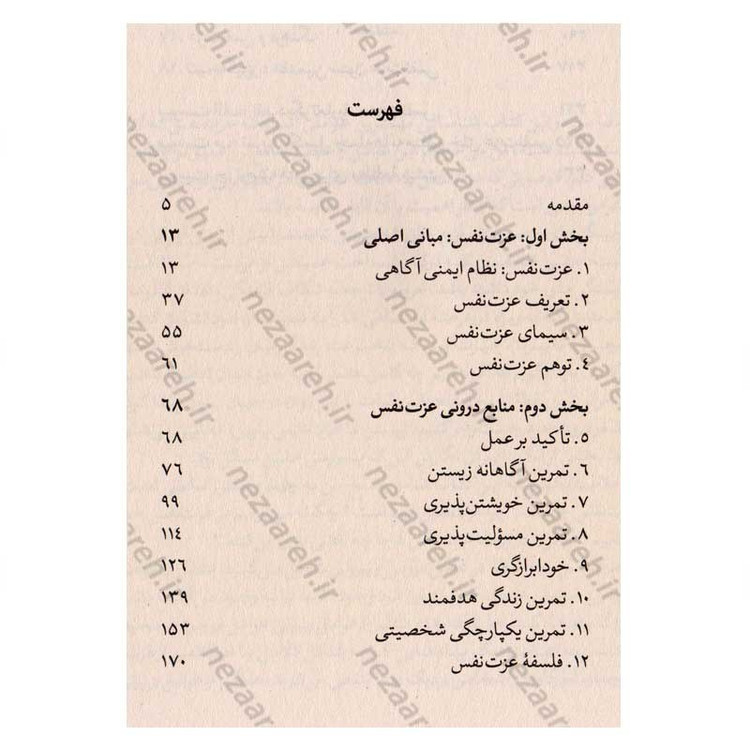 فهرست
مقدمه ۵
بخش اول: عزت‌نفس: مبانی اصلی ۱۳
۱. عزت‌نفس: نظام ایمنی آگاهی ۱۳
۲. تعریف عزت‌نفس ۳۷
۳. سیمای عزت‌نفس ۵۵
٤. توهم عزت‌نفس ٦۱
بخش دوم: منابع درونی عزت‌نفس ٦۸
۵. تأکید بر عمل ٦۸
٦. تمرین آگاهانه زیستن ۷٦
۷. تمرین خویشتن‌پذیری ۹۹
۸. تمرین مسؤلیت‌پذیری ۱۱٤
۹. خودابرازگری ۱۲٦
۱۰. تمرین زندگی هدفمند ۱۳۹
۱۱. تمرین یکپارچگی شخصیتی ۱۵۳
۱۲. فلسفهٔ عزت‌نفس ۱۷۰
nezaareh.ir